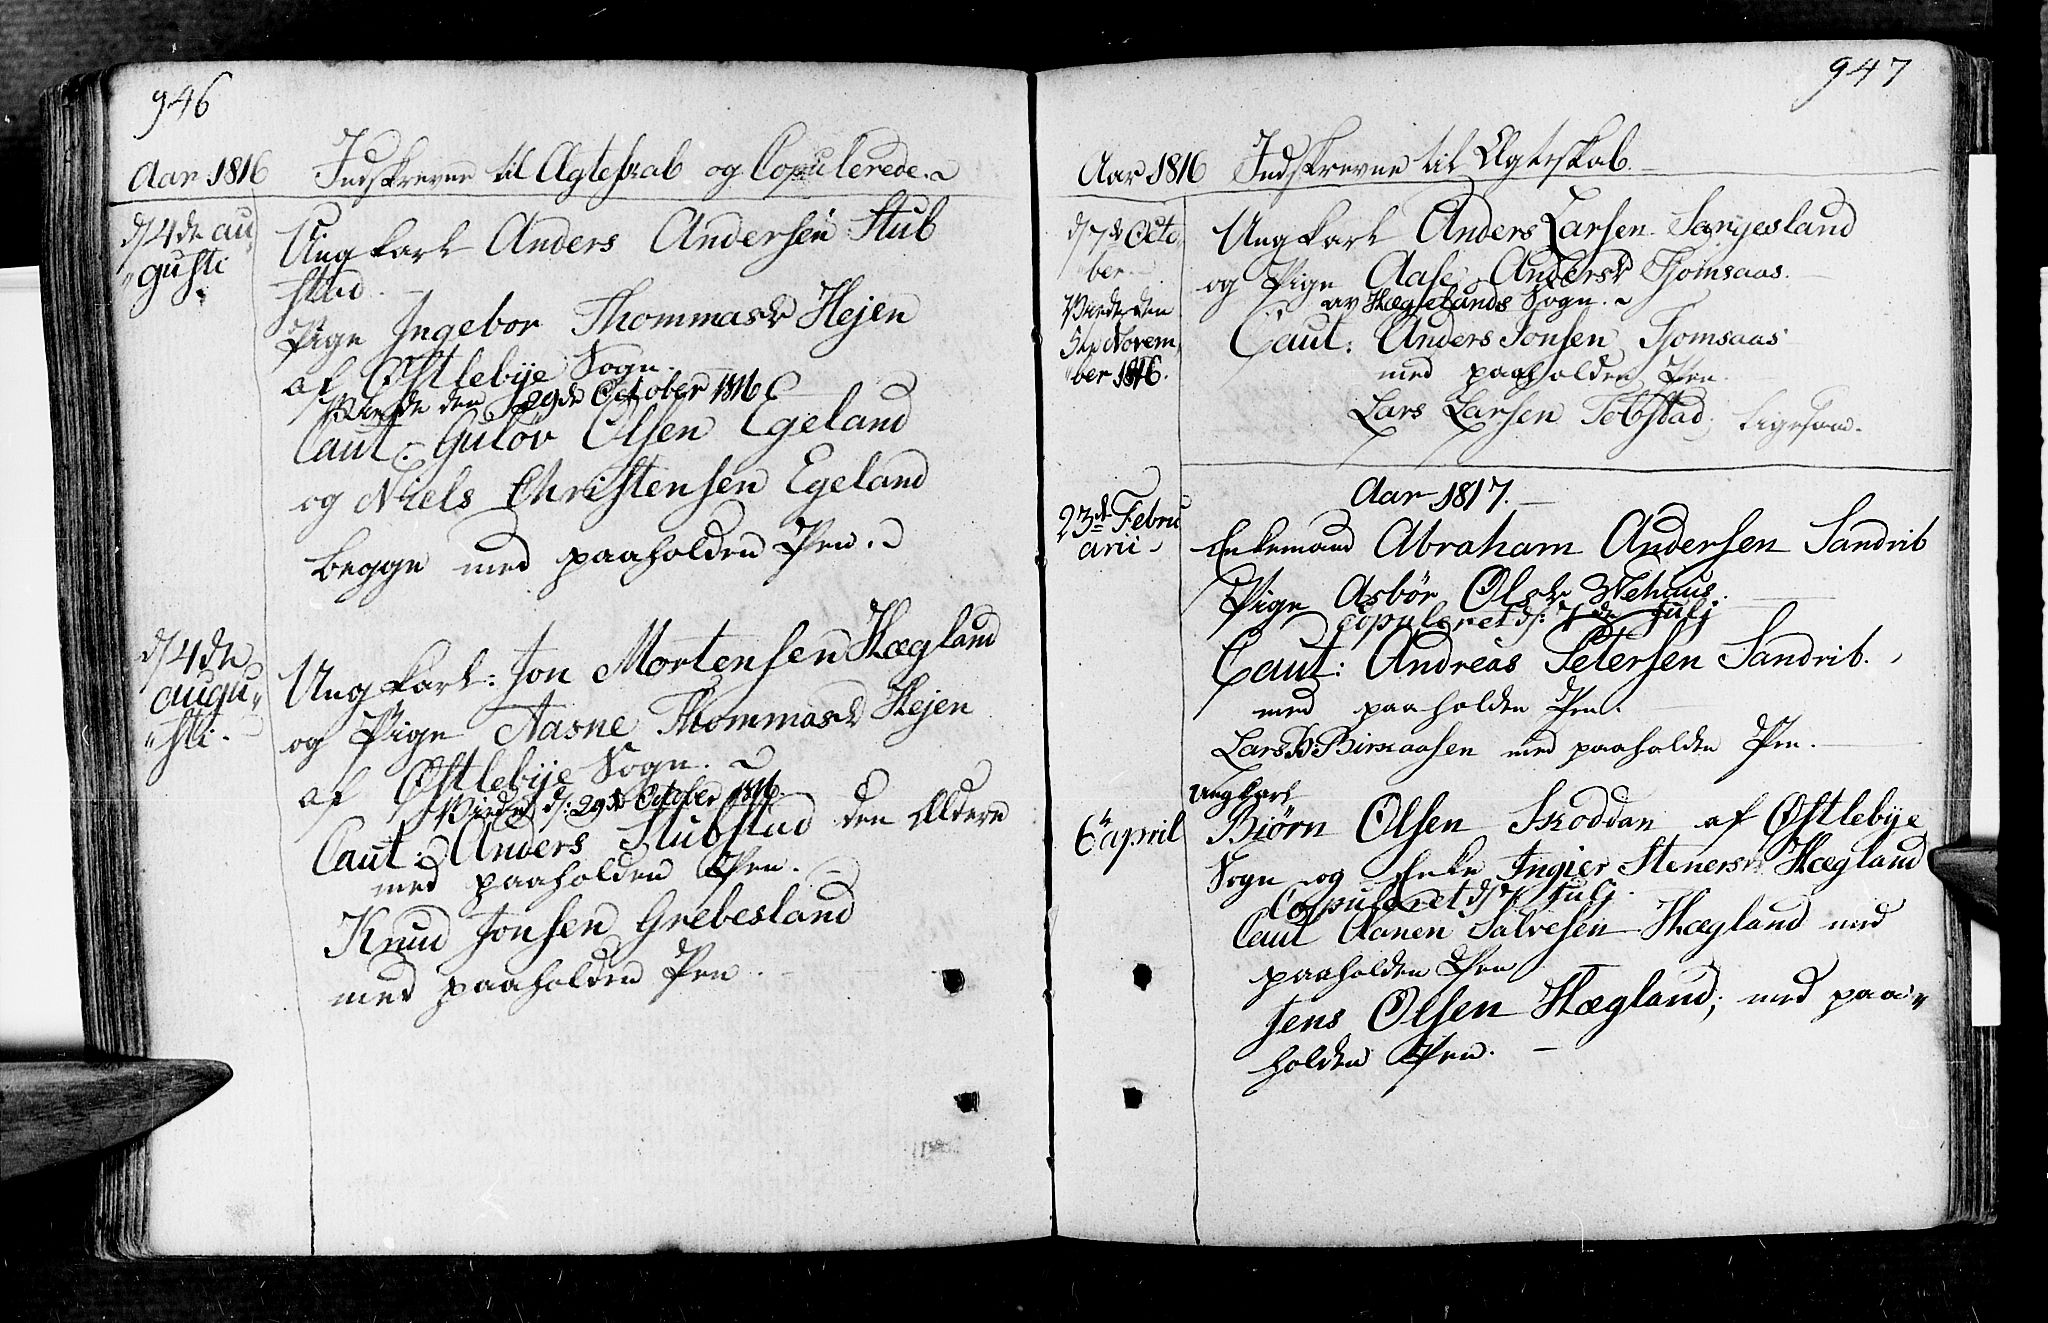 946
Aar 1816 Indskrevne til Ægteskab og Copulerede.
d/4de au
gusti
Ungkarl Anders Andersen Stub
stad.
Pige Ingebor Thommasdr Hejen
af Østlebÿe Sogn.
Viede den 29de October 1816
Caut: Guløv Olsen Egeland
og Niels Christensen Egeland
begge med paaholden Pen.
d/4de
augu
sti.
Ungkarl: Jon Mortensen Hægland
og Pige Aasne Thommasdr Hejen
af Østlebÿe Sogn.
Viedet d: 29de October 1816
Caut: Anders Stubstad den Ældere
med paaholden Pen.
Knud Jonsen Grebesland
med paaholden Pen.
947
Aar 1816 Indskrevne til Ægteskab.
d/7de Octo
ber
Viede den
5te Novem
ber 1816.
Ungkarl Anders Larsen
og Pige Aase Andersdr Tjomsaas.
av Hægelands Sogn.
Caut: Anders Jonsen Tjomsaas
med paaholden Pen.
Lars Larsen Tobstad; ligesaa.
Aar 1817.
23de Febru
arii
Enkemand Abraham Andersen Sandrib
Pige Asbør Olsdr Wehuus.
Copuleret d: 7de Julj
Caut: Andreas Petersen Sandrib.
med paaholden Pen.
Lars Birkaasen med paaholden Pen.
Ungkarl
6te april
Biørn Olsen Skoddan af Østlebÿe
Sogn og Enke Ingier Stenersdr Hægland
Copuleret d/7 Julj.
Caut Aanen Salvesen Hægland med
paaholden Pen
Jens Olsen Hægland; med paa
holden Pen.